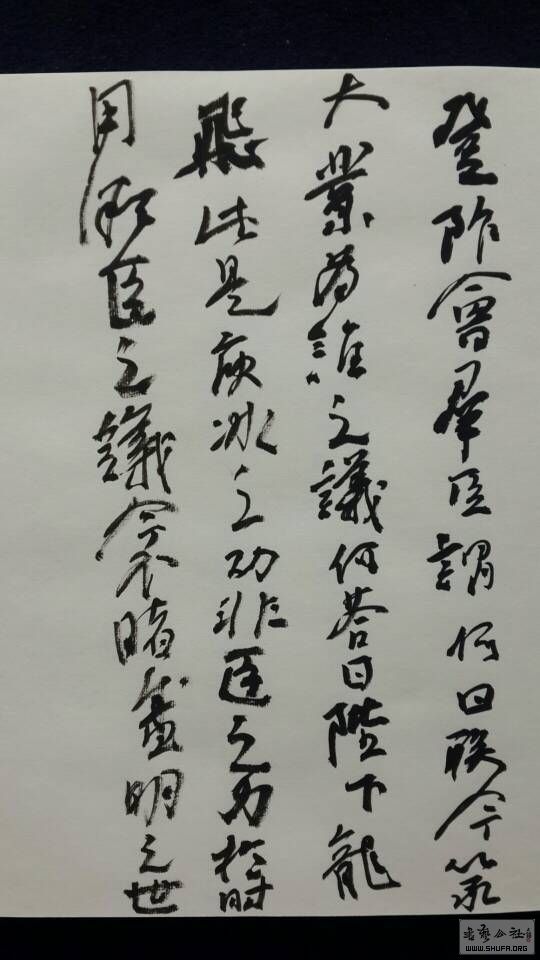 登阼會群臣謂何曰朕今纂
大業為誰之議何答曰陛下龍
飛此是庾冰之功非臣之力於時
用微臣之議今不睹盛明之世
书艺公社
WWW.SHUFA.ORG